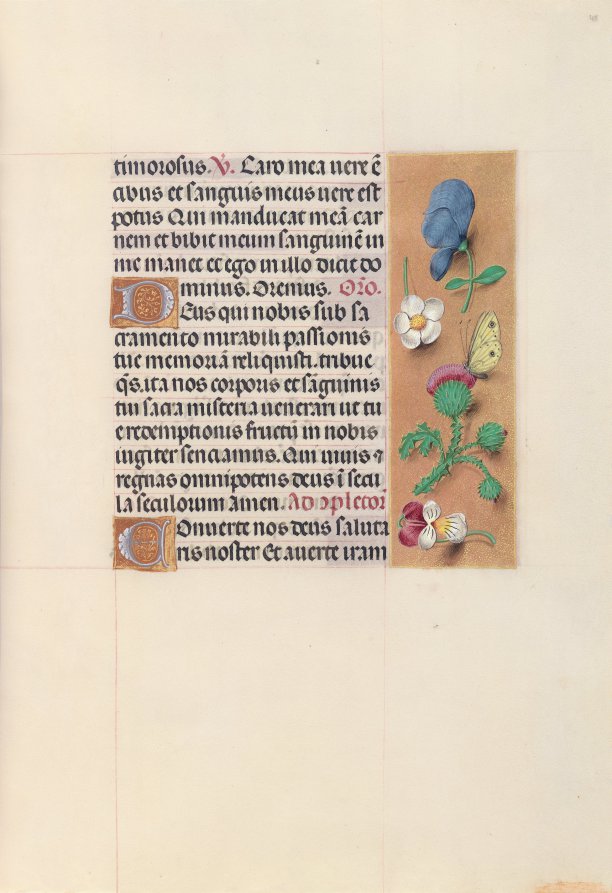 timorosus. V̓. Caro mea uere ē
cibus et sanguis meus uere est
potus Qui manducat meā car
nem et bibit meum sanguinē in
me manet et ego in illo dicit do
minus. Oremus. Orō.
Deus qui nobis sub sa
cramento mirabili passionis
tue memoriā reliquisti. tribue
q̄s. ita nos corporis et sāguinis
tui sacra misteria uenerari ut tu
e redemptionis fructū in nobis
iugiter senciamus. Qui uiuis ⁊
regnas omnipotens deus ī secu
la seculorum amen. Ad ꝯpletoꝝ
Conuerte nos deus saluta
ris noster Et auerte iram